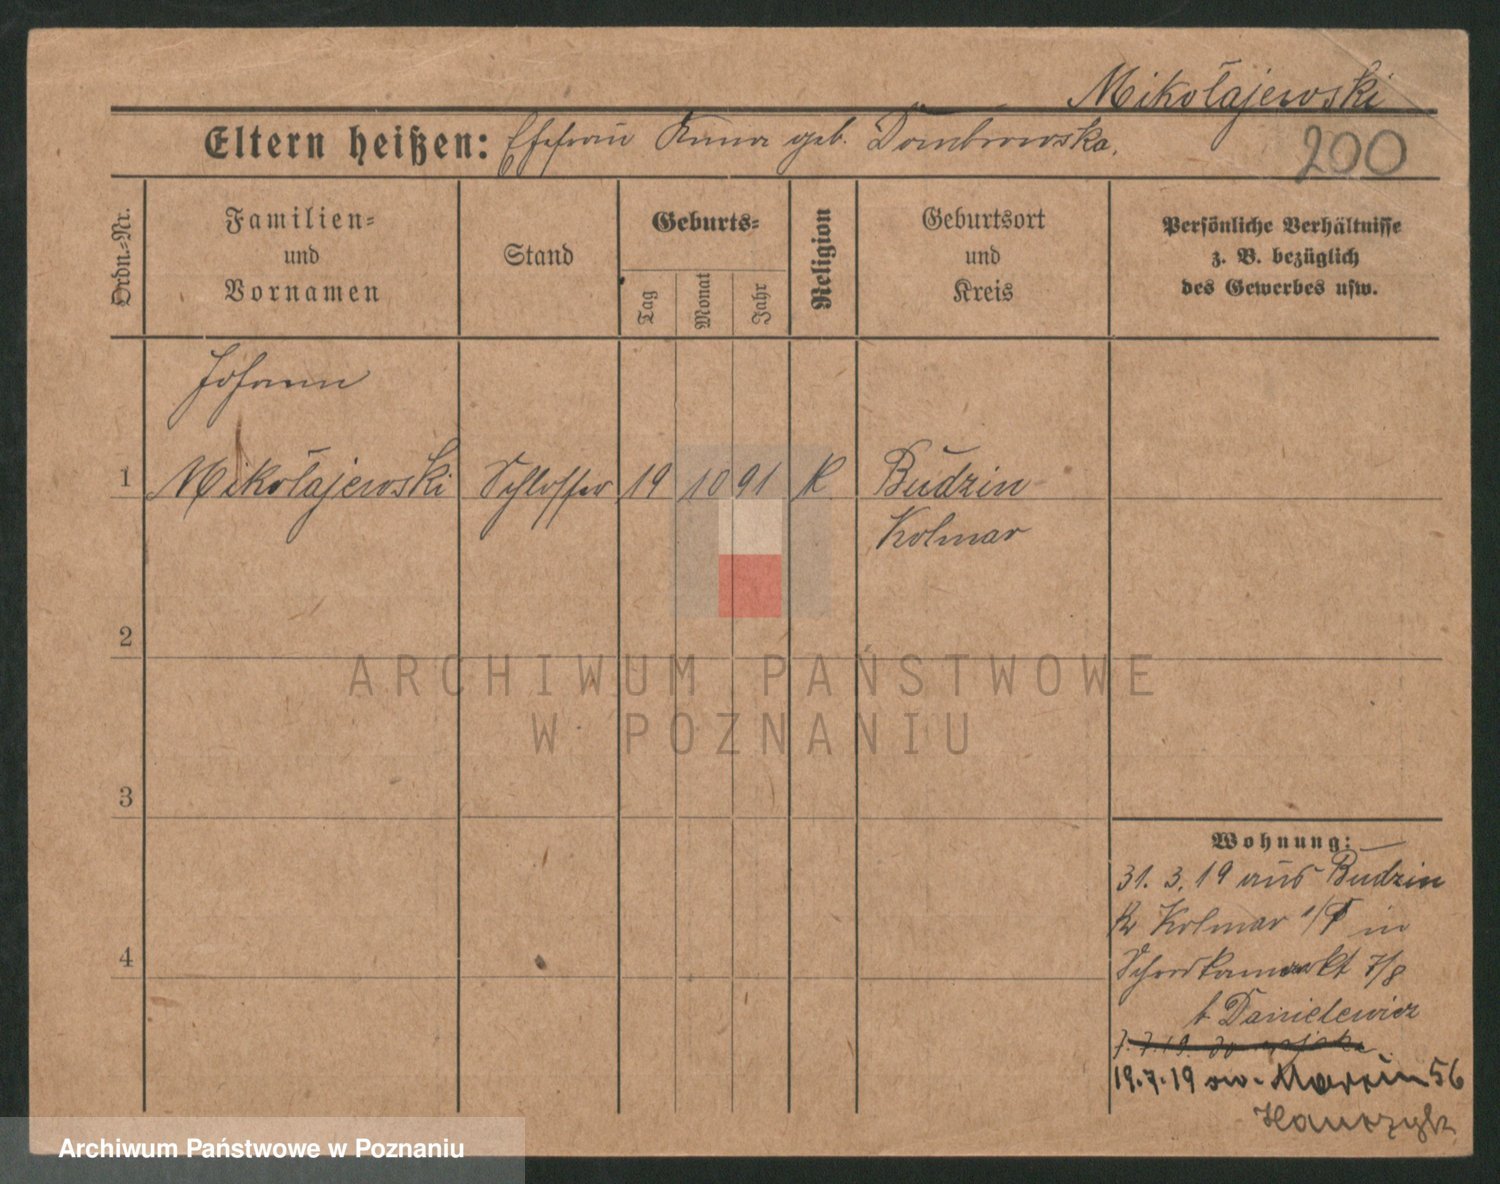 Mikołajewski
Eltern heißen: Ehefrau Anna geb. Dombrowska.
200
Ordn.-Nr.
Familien-
und
Vornamen
Stand
Geburts-
Tag
Monat
Jahr
Religion
Geburtsort
und
Kreis
Persönliche Verhältnisse
z. B. bezüglich
des Gewerbes usw.
Johann
1 Mikołajewski Schlosser 19 10 91 K Budzin
Kolmar
2
3
4
Wohnung:
31. 3. 19 aus Budzin
Kr Kolmar i/P in
7/8
b. Danielewicz
7.7.19.
19.7.19 św. Marcin 56
ARCHIWUM PAŃSTWOWE
W POZNANIU
Archiwum Państwowe w Poznaniu